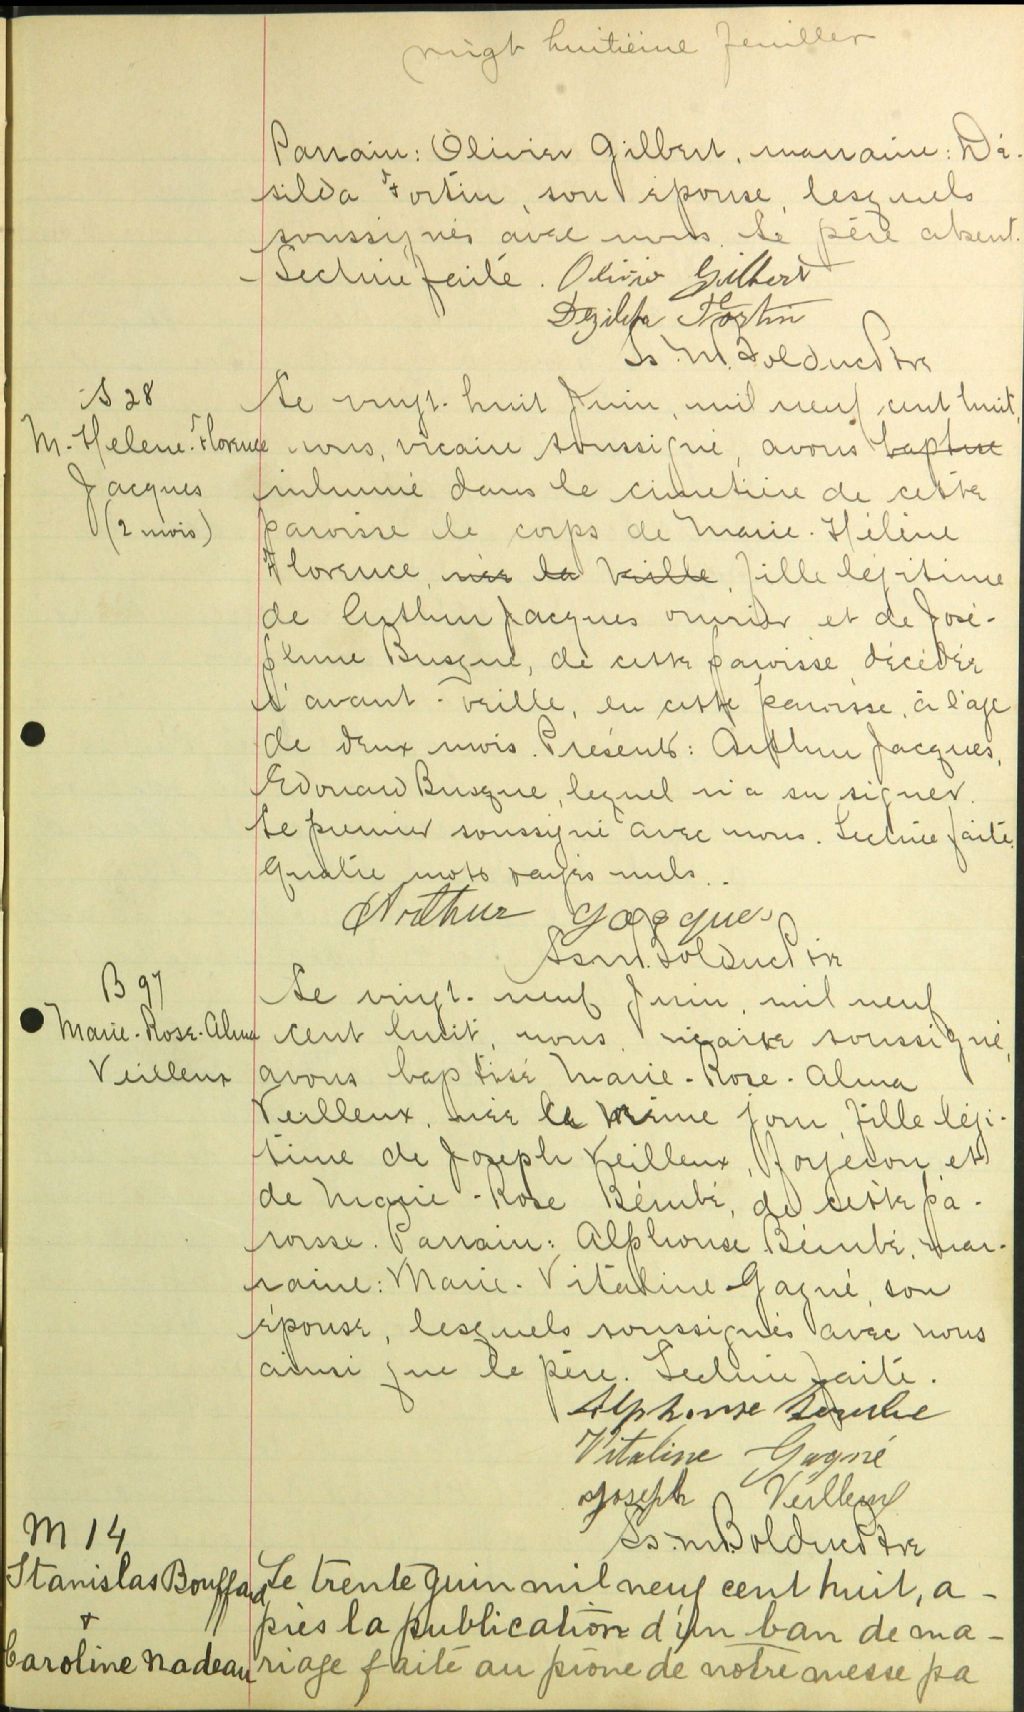 vingt huitième feuillet
Parrain: Olivier Gilbert, marraine: Dé-
silda Fortin, son épouse, lesquels
soussignés avec nous. Le père absent.
- Lecture faite. Olivier Gilbert
Dezilda Fortin
Ls. M. Bolduc Ptre
S 28
M.-Helene-Florence
Jacques
(2 mois)
Le vingt-huit Juin, mil neuf cent huit,
nous, vicaire soussigné, avons baptisé
inhumé dans le cimetière de cette
paroisse le corps de Marie-Hélène
Florence, née la veille, fille légitime
de Arthur Jacques ouvrier et de José-
phine Busque, de cette paroisse, décédée
l'avant-veille, en cette paroisse, à l'age
de deux mois. Présents: Arthur Jacques,
Edouard Busque, lequel n'a su signer.
Le premier soussigné avec nous. Lecture faite.
Quatre mots rayés nuls.
Arthur Jacques
Ls. M. Bolduc Ptre
B 97
Marie-Rose-Alma
Veilleux
Le vingt-neuf Juin, mil neuf
cent huit, nous, vicaire soussigné,
avons baptisé Marie-Rose-Alma
Veilleux, née le même jour, fille légi-
time de Joseph Veilleux, forgeron, et
de Marie-Rose Bérubé, de cette pa-
roisse. Parrain: Alphonse Bérubé, mar-
raine: Marie-Vitaline Gagné, son
épouse, lesquels soussignés avec nous
ainsi que le père. Lecture faite.
Alphonse Berube
Vitaline Gagné
Joseph Veilleux
Ls. M. Bolduc Ptre
M 14
Stanislas Bouffard
+
Caroline Nadeau
Le trente Juin mil neuf cent huit, a-
près la publication d'un ban de ma-
riage faite au prône de notre messe pa